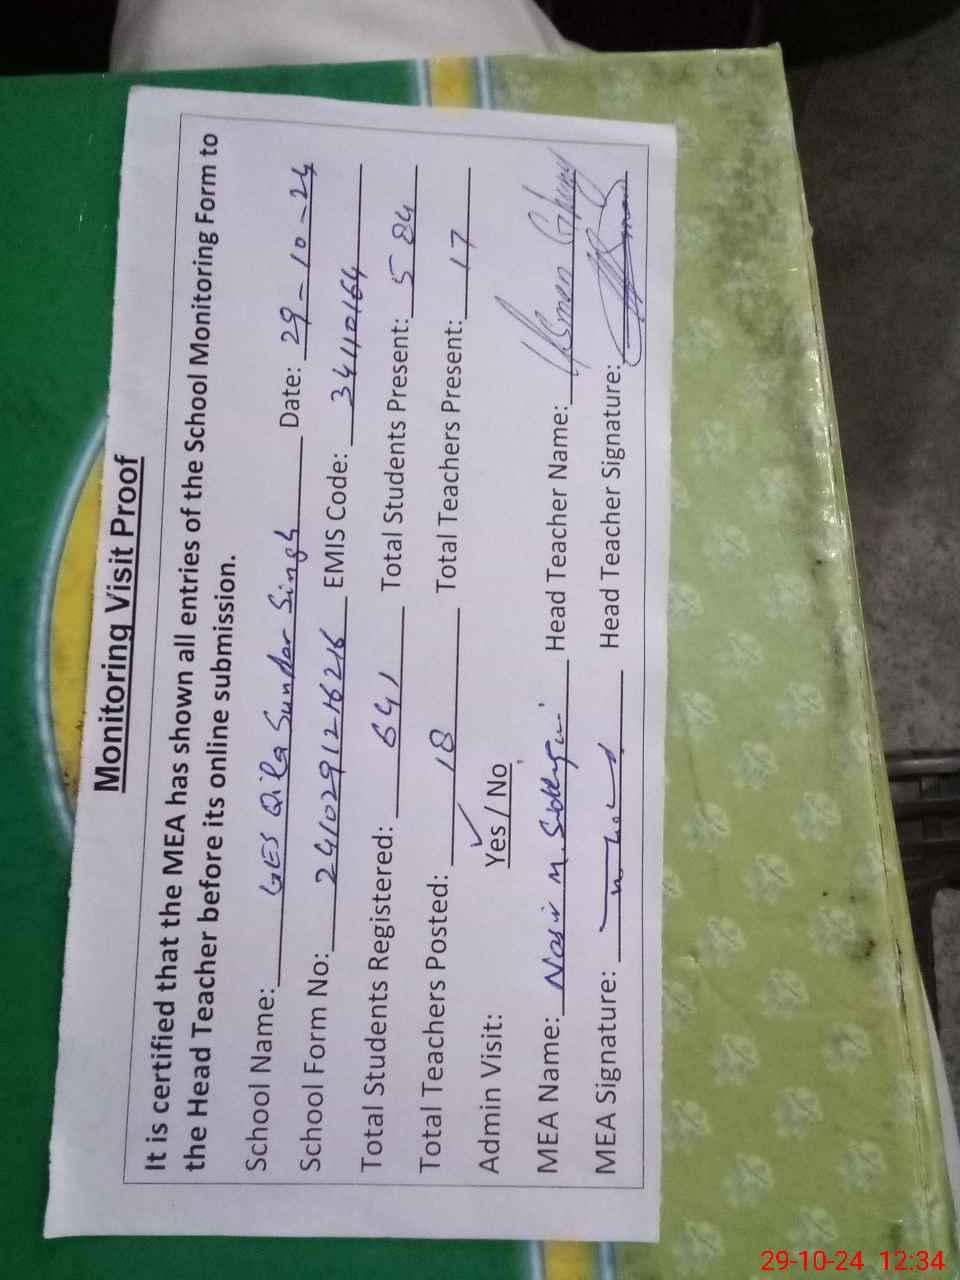 Monitoring Visit Proof
It is certified that the MEA has shown all entries of the School Monitoring Form to
the Head Teacher before its online submission.
School Name: GES Qila Sundar Singh Date: 29-10-24
School Form No: 2410291216216 EMIS Code: 34110164
Total Students Registered: 641 Total Students Present: 584
Total Teachers Posted: 18 Total Teachers Present: 17
Admin Visit: Yes / No
MEA Name: Nasir M. Head Teacher Name: Usman Ghany
MEA Signature: Head Teacher Signature:
29-10-24 12:34